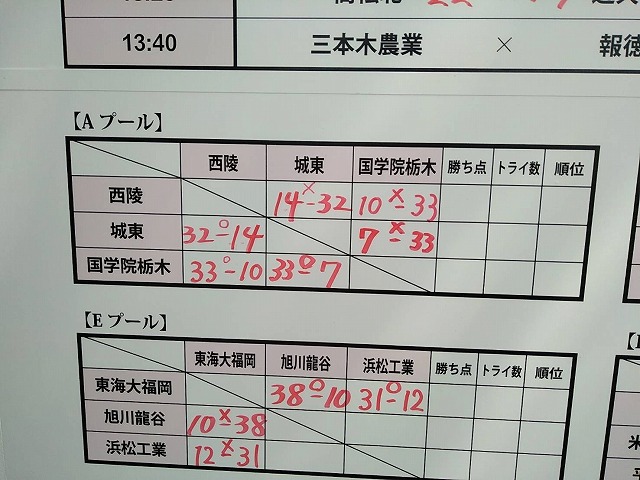 13:40 三本木農業 × 報徳
【Aプール】
西陵 城東 国学院栃木 勝ち点 トライ数 順位
西陵 14×32 10×33
城東 32○14 7×33
国学院栃木 33○10 33○7
【Eプール】
東海大福岡 旭川龍谷 浜松工業 勝ち点 トライ数 順位
東海大福岡 38○10 31○12
旭川龍谷 10×38
浜松工業 12×31